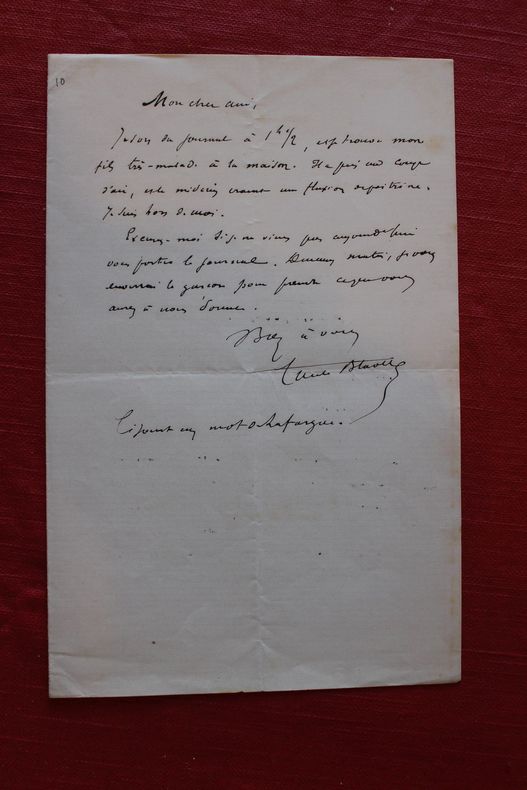 10
Mon cher ami,
Je sors du journal à 1h 1/2, et je trouve mon
fils très-malade à la maison. Il a pris un coup
d'air, et le médecin craint une fluxion de poitrine.
Je suis hors de moi.
Excusez-moi si je ne viens pas aujourd'hui
vous porter le journal. Demain matin, je vous
enverrai le garçon pour prendre ce que vous
aurez à nous donner.
Bien à vous
Ci-joint un mot de Lafargue.